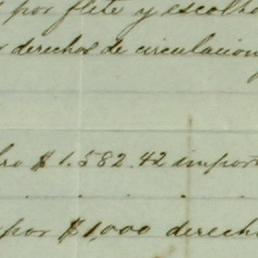 por flete y escolho
derechos de circulacion
$1.582.42 import
por $1,000 derecho